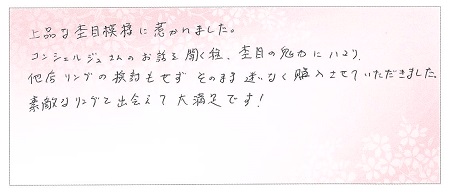 上品な杢目模様に惹かれました。
コンシェルジュさんのお話を聞く程、杢目の魅力にハマり、
他店リングの検討もせず そのまま迷いなく購入させていただきました。
素敵なリングと出会えて大満足です！